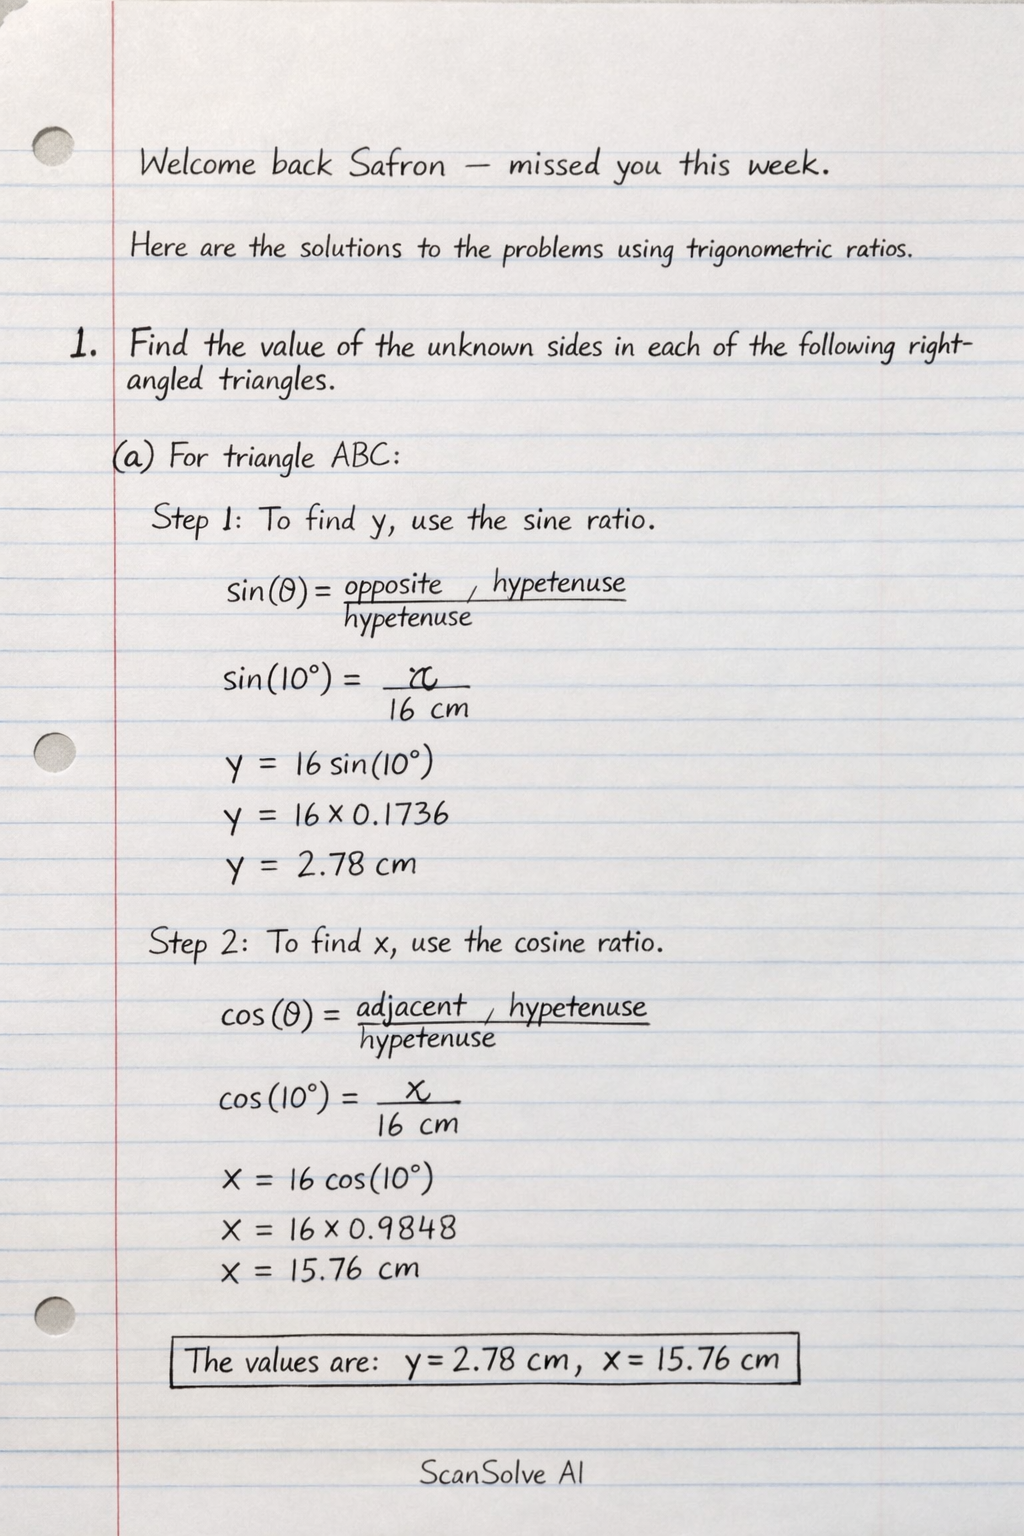 Welcome back Safron — missed you this week.
Here are the solutions to the problems using trigonometric ratios.
1. Find the value of the unknown sides in each of the following right-
angled triangles.
(a) For triangle ABC:
Step 1: To find y, use the sine ratio.
sin(θ) = opposite , hypetenuse
hypetenuse
sin(10°) = x
16 cm
y = 16 sin(10°)
y = 16 x 0.1736
y = 2.78 cm
Step 2: To find x, use the cosine ratio.
cos(θ) = adjacent , hypetenuse
hypetenuse
cos(10°) = x
16 cm
x = 16 cos(10°)
x = 16 x 0.9848
x = 15.76 cm
The values are: y = 2.78 cm, x = 15.76 cm
ScanSolve AI